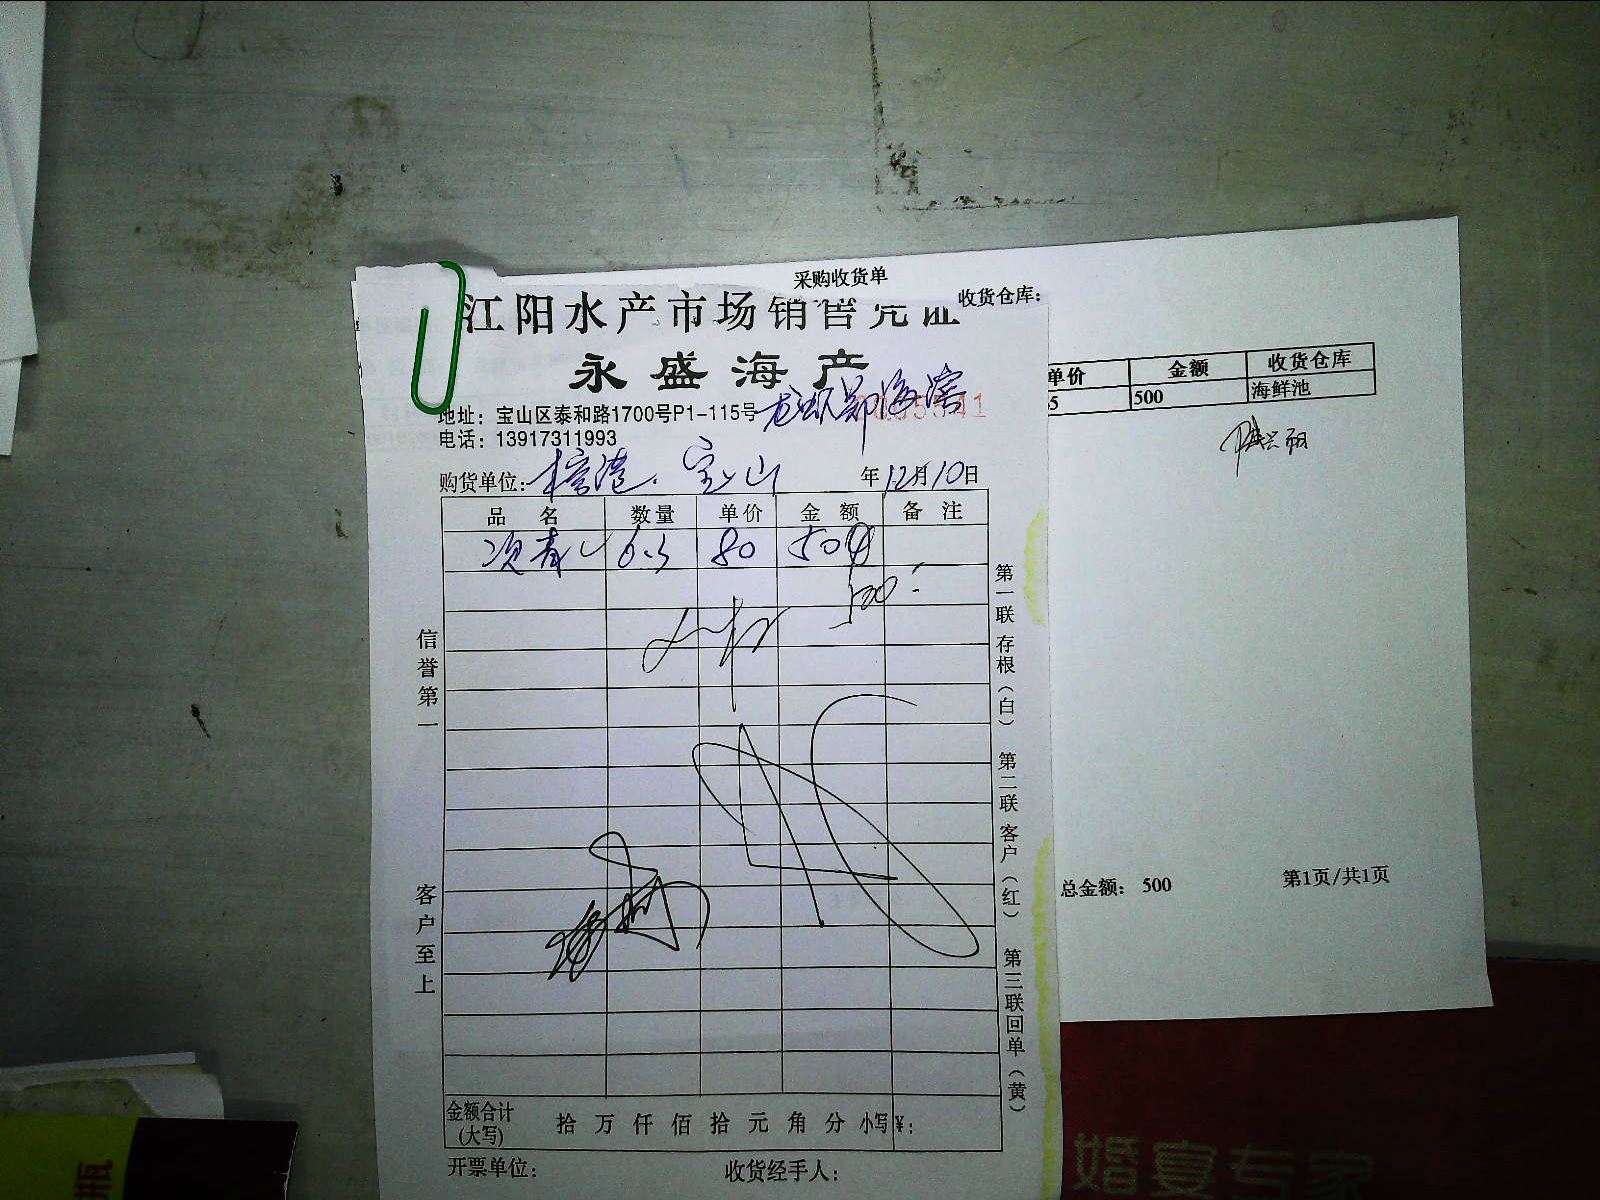 采购收货单
收货仓库：
江阳水产市场销售凭证
永盛海产
地址：宝山区泰和路1700号P1-115号
电话：13917311993
购货单位： 宝山 年12月10日
品名 数量 单价 金额 备注
6.3 80 504
500
信誉第一
客户至上
第一联 存根（白） 第二联 客户（红） 第三联 回单（黄）
金额合计（大写） 拾 万 仟 佰 拾 元 角 分 小写 ¥：
开票单位： 收货经手人：
单价 金额 收货仓库
5 500 海鲜池
总金额： 500 第1页/共1页
婚宴专家
瓶